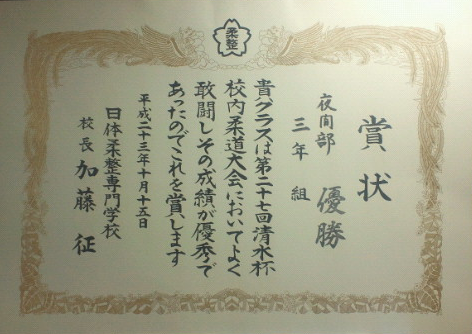 柔整
賞状
優勝
夜間部
三年組
貴クラスは第二十七回清水杯
校内柔道大会においてよく
敢闘しその成績が優秀で
あったのでこれを賞します
平成二十三年十月十五日
日体柔整専門学校
校長 加藤 征